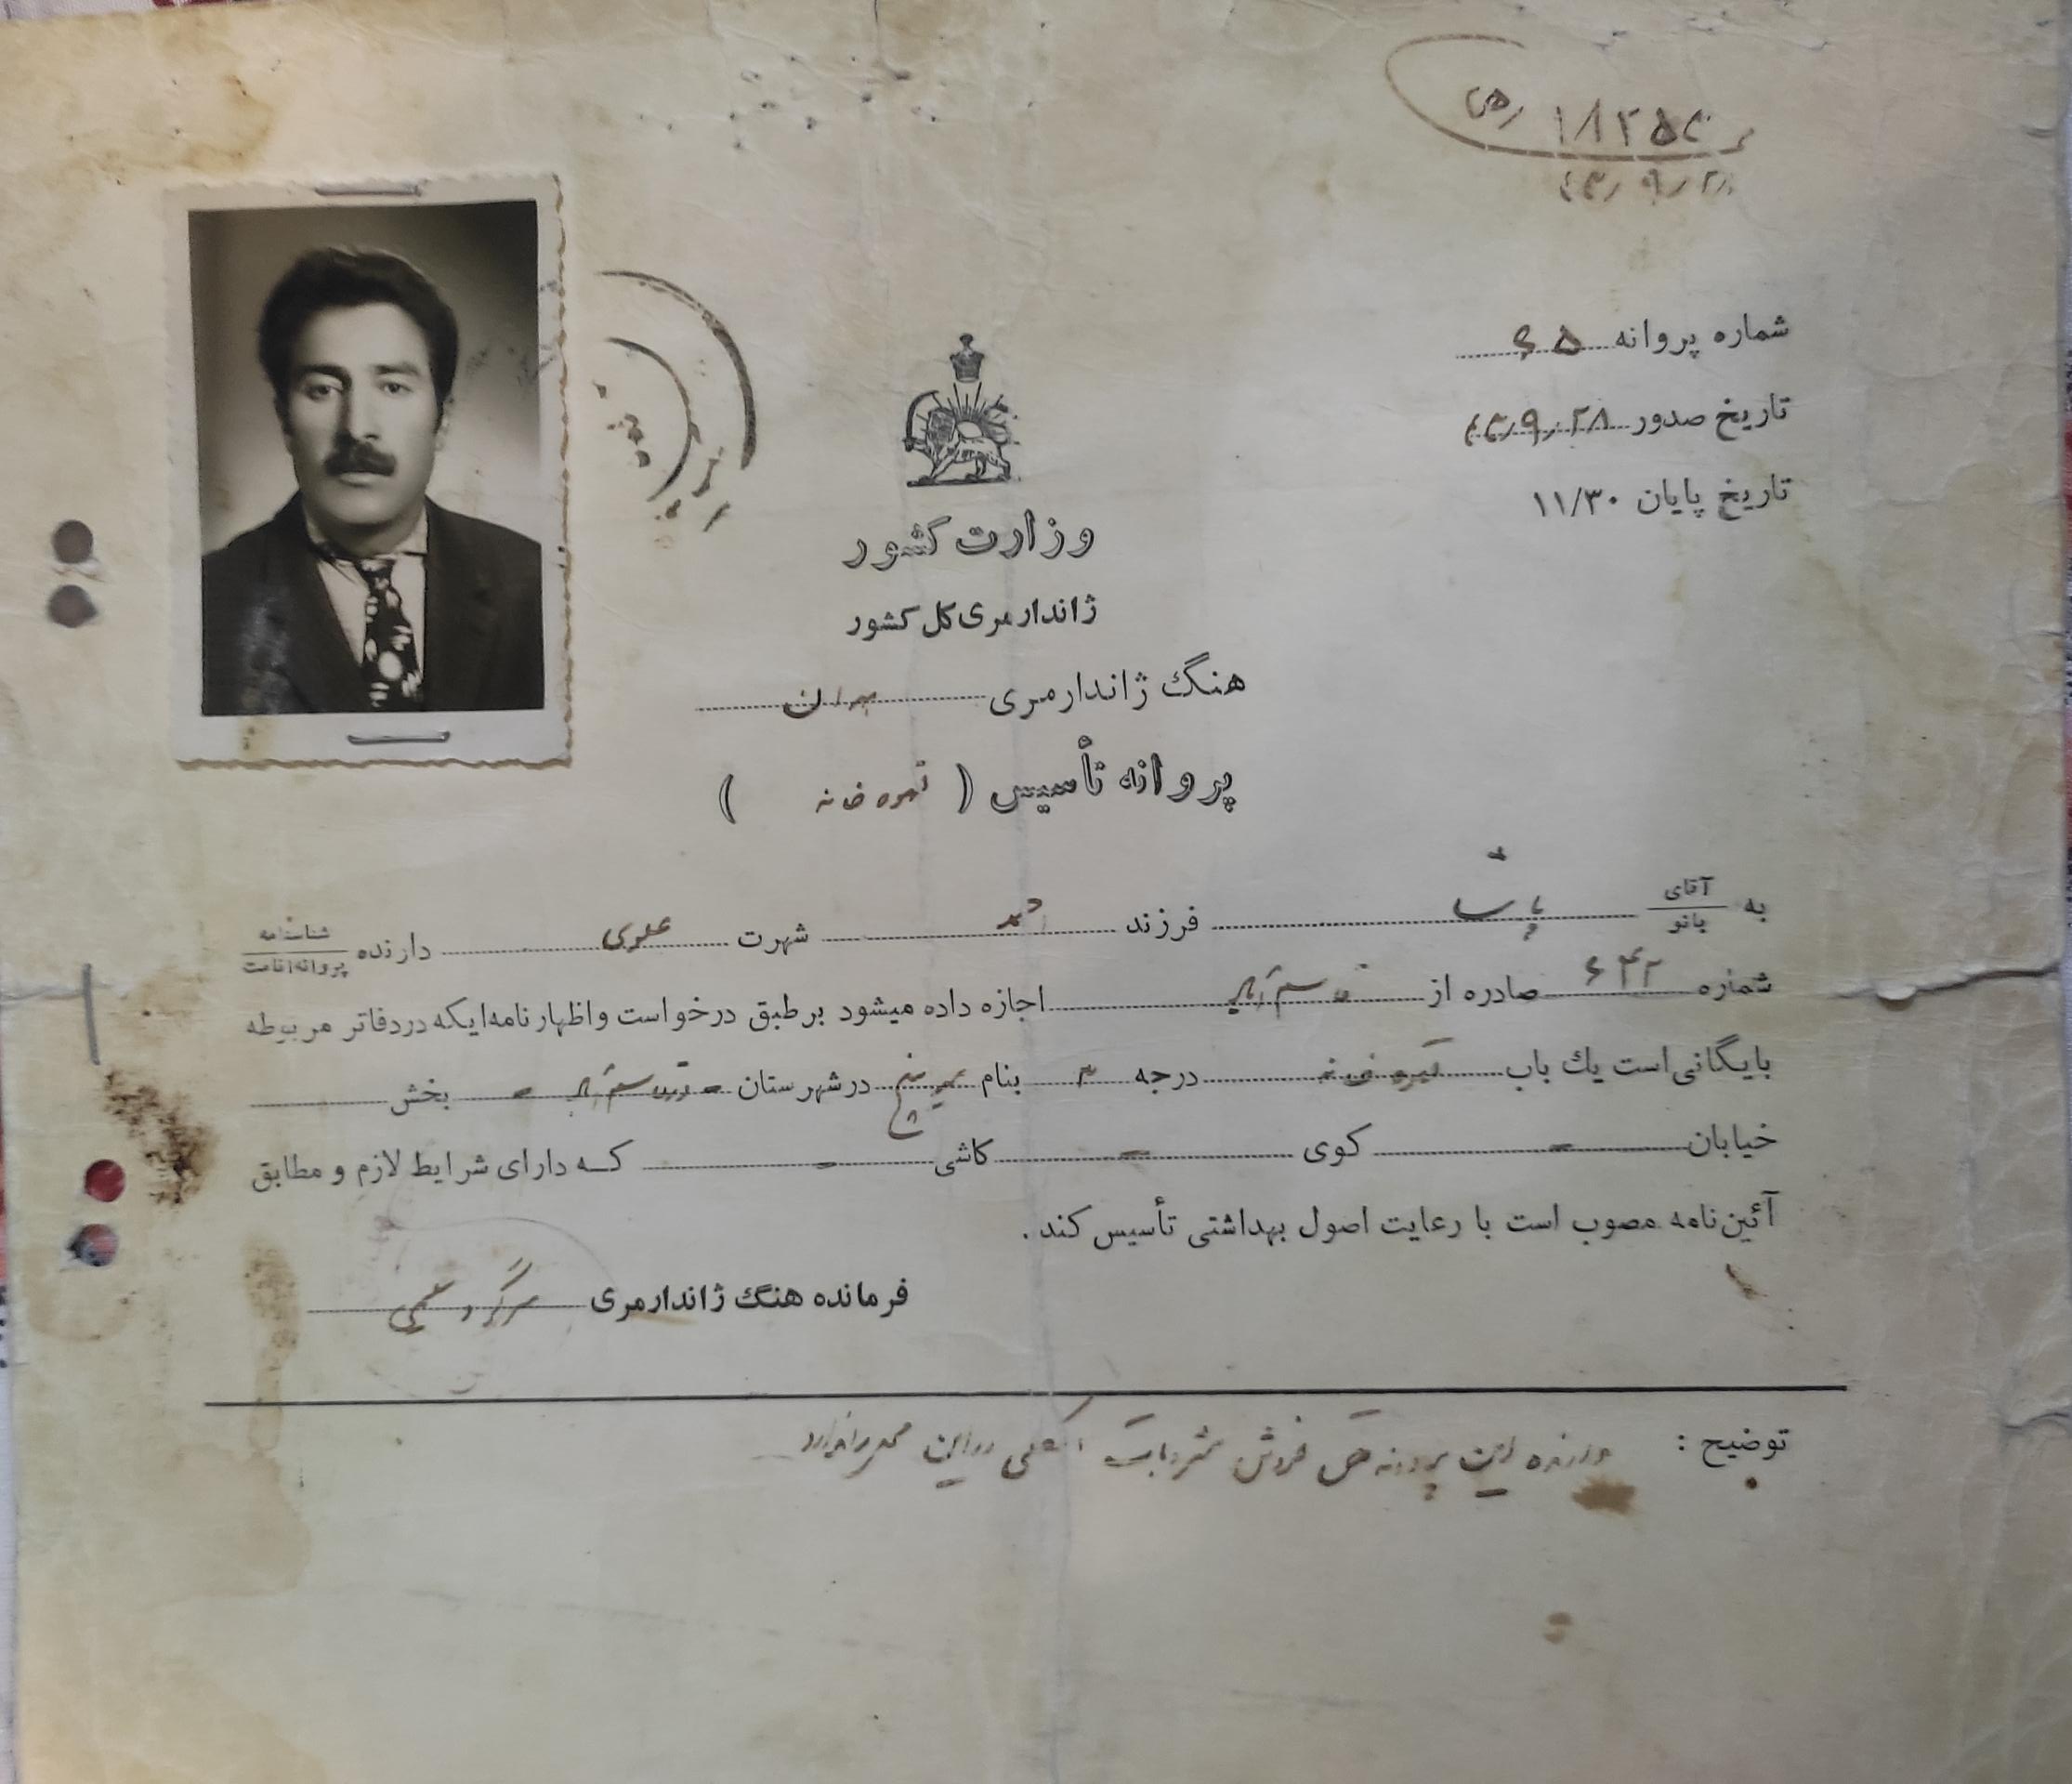 ۱۸۲۵۴
۴۳/۹/۲۸
شماره پروانه ۶۵
تاریخ صدور ۴۳/۹/۲۸
تاریخ پایان ۱۱/۳۰
وزارت کشور
ژاندارمری کل کشور
هنگ ژاندارمری
پروانه تأسیس ( قهوه خانه )
به آقای / بانو فرزند احمد شهرت علوی دارنده شناسنامه / پروانه اقامت
شماره ۶۴۲ صادره از قاسم آباد اجازه داده میشود برطبق درخواست و اظهارنامه‌ایکه دردفاتر مربوطه
بایگانی است یك باب قهوه خانه درجه ۳ بنام درشهرستان قاسم آباد بخش
خیابان - کوی - کاشی - که دارای شرایط لازم و مطابق
آئین‌نامه مصوب است با رعایت اصول بهداشتی تأسیس کند.
فرمانده هنگ ژاندارمری سرگرد
توضیح : دارنده این پروانه حق فروش مشروبات الکلی در این محل را ندارد